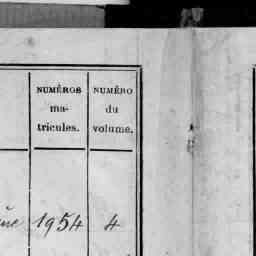 NUMÉROS
ma-
tricules.
NUMÉRO
du
volume.
1954 4